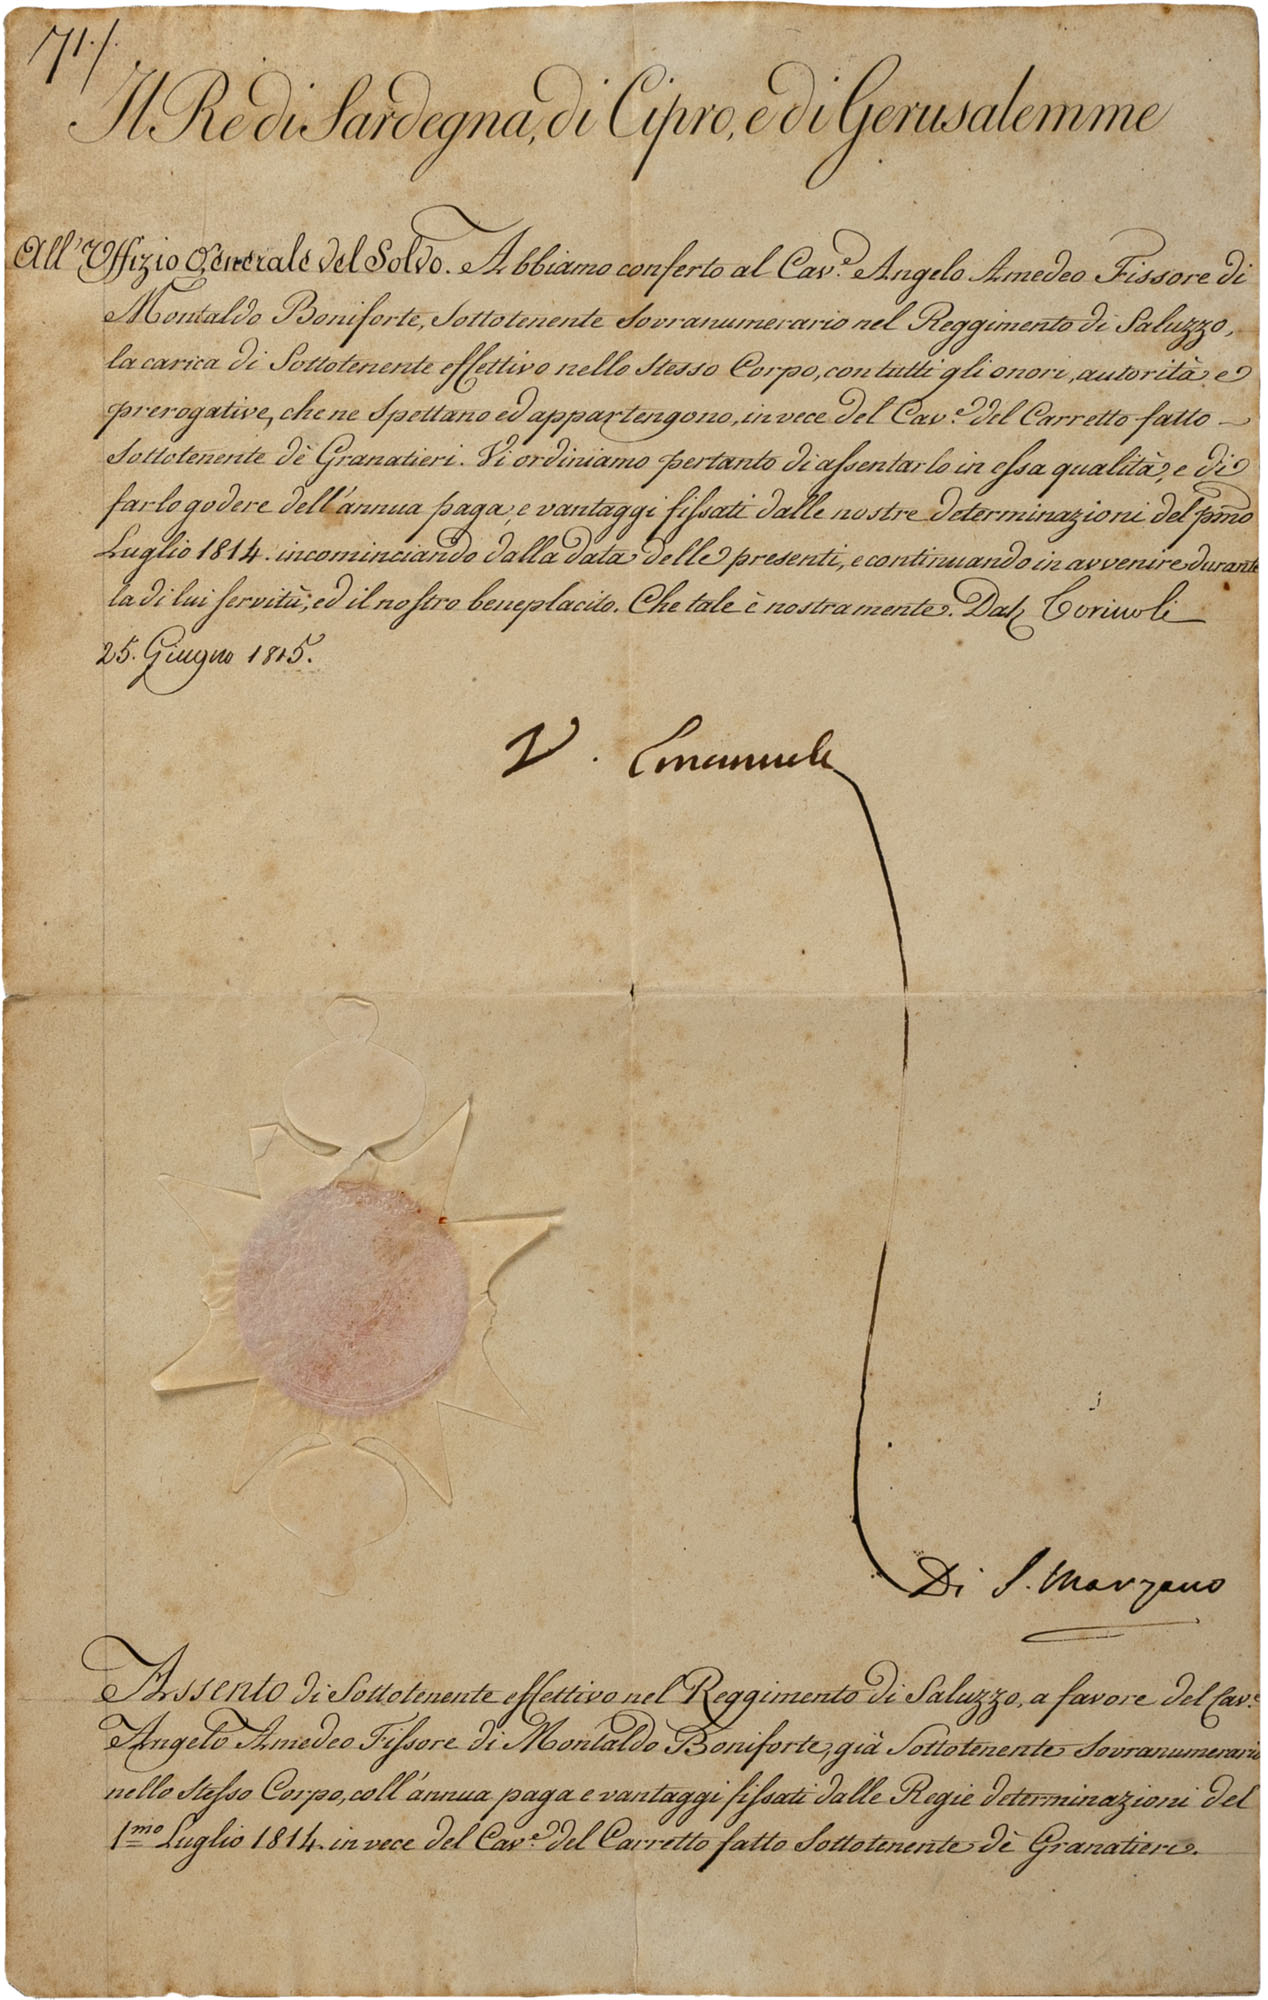 71./.
Il Re di Sardegna, di Cipro, e di Gerusalemme
All'Uffizio Generale del Soldo. Abbiamo conferto al Cav.e Angelo Amedeo Fissore di
Montaldo Boniforte, Sottotenente Sovranumerario nel Reggimento di Saluzzo,
la carica di Sottotenente effettivo nello Stesso Corpo, con tutti gli onori, autorità, e
prerogative, che ne Spettano ed appartengono, in vece del Cav.e del Carretto fatto —
Sottotenente dè Granatieri. Vi ordiniamo pertanto di assentarlo in essa qualità, e di
farlo godere dell'annua paga, e vantaggi fissati dalle nostre determinazioni del pmo
Luglio 1814. incominciando dalla data delle presenti, e continuando in avvenire durante
la di lui servitù, ed il nostro beneplacito. Che tale è nostra mente. Dat.
25. Giugno 1815.
V. Emanuele
Di S. Marzano
Assento di Sottotenente effettivo nel Reggimento di Saluzzo, a favore del Cav.e
Angelo Amedeo Fissore di Montaldo Boniforte, già Sottotenente Sovranumerario
nello Stesso Corpo, coll'annua paga e vantaggi fissati dalle Regie determinazioni del
1mo Luglio 1814. in vece del Cav.e del Carretto fatto Sottotenente dè Granatieri.